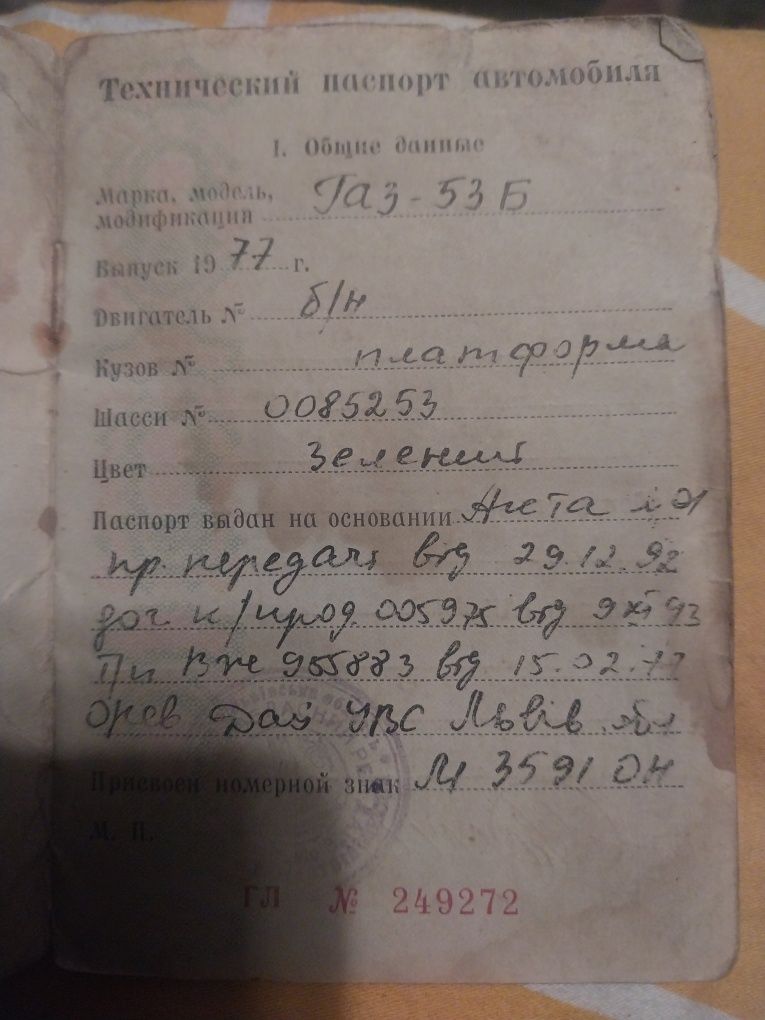 Технический паспорт автомобиля
I. Общие данные
Марка, модель,
модификация Газ-53Б
Выпуск 1977 г.
Двигатель № б/н
Кузов № платформа
Шасси № 0085253
Цвет Зелений
Паспорт выдан на основании Акта
пр. передачі від 29.12.92
дог к/прод. 005975 від 9 XI 93
955883 від 15.02.77
Дай УВС Львів. обл
Присвоен номерной знак 3591
М. П.
ГЛ № 249272